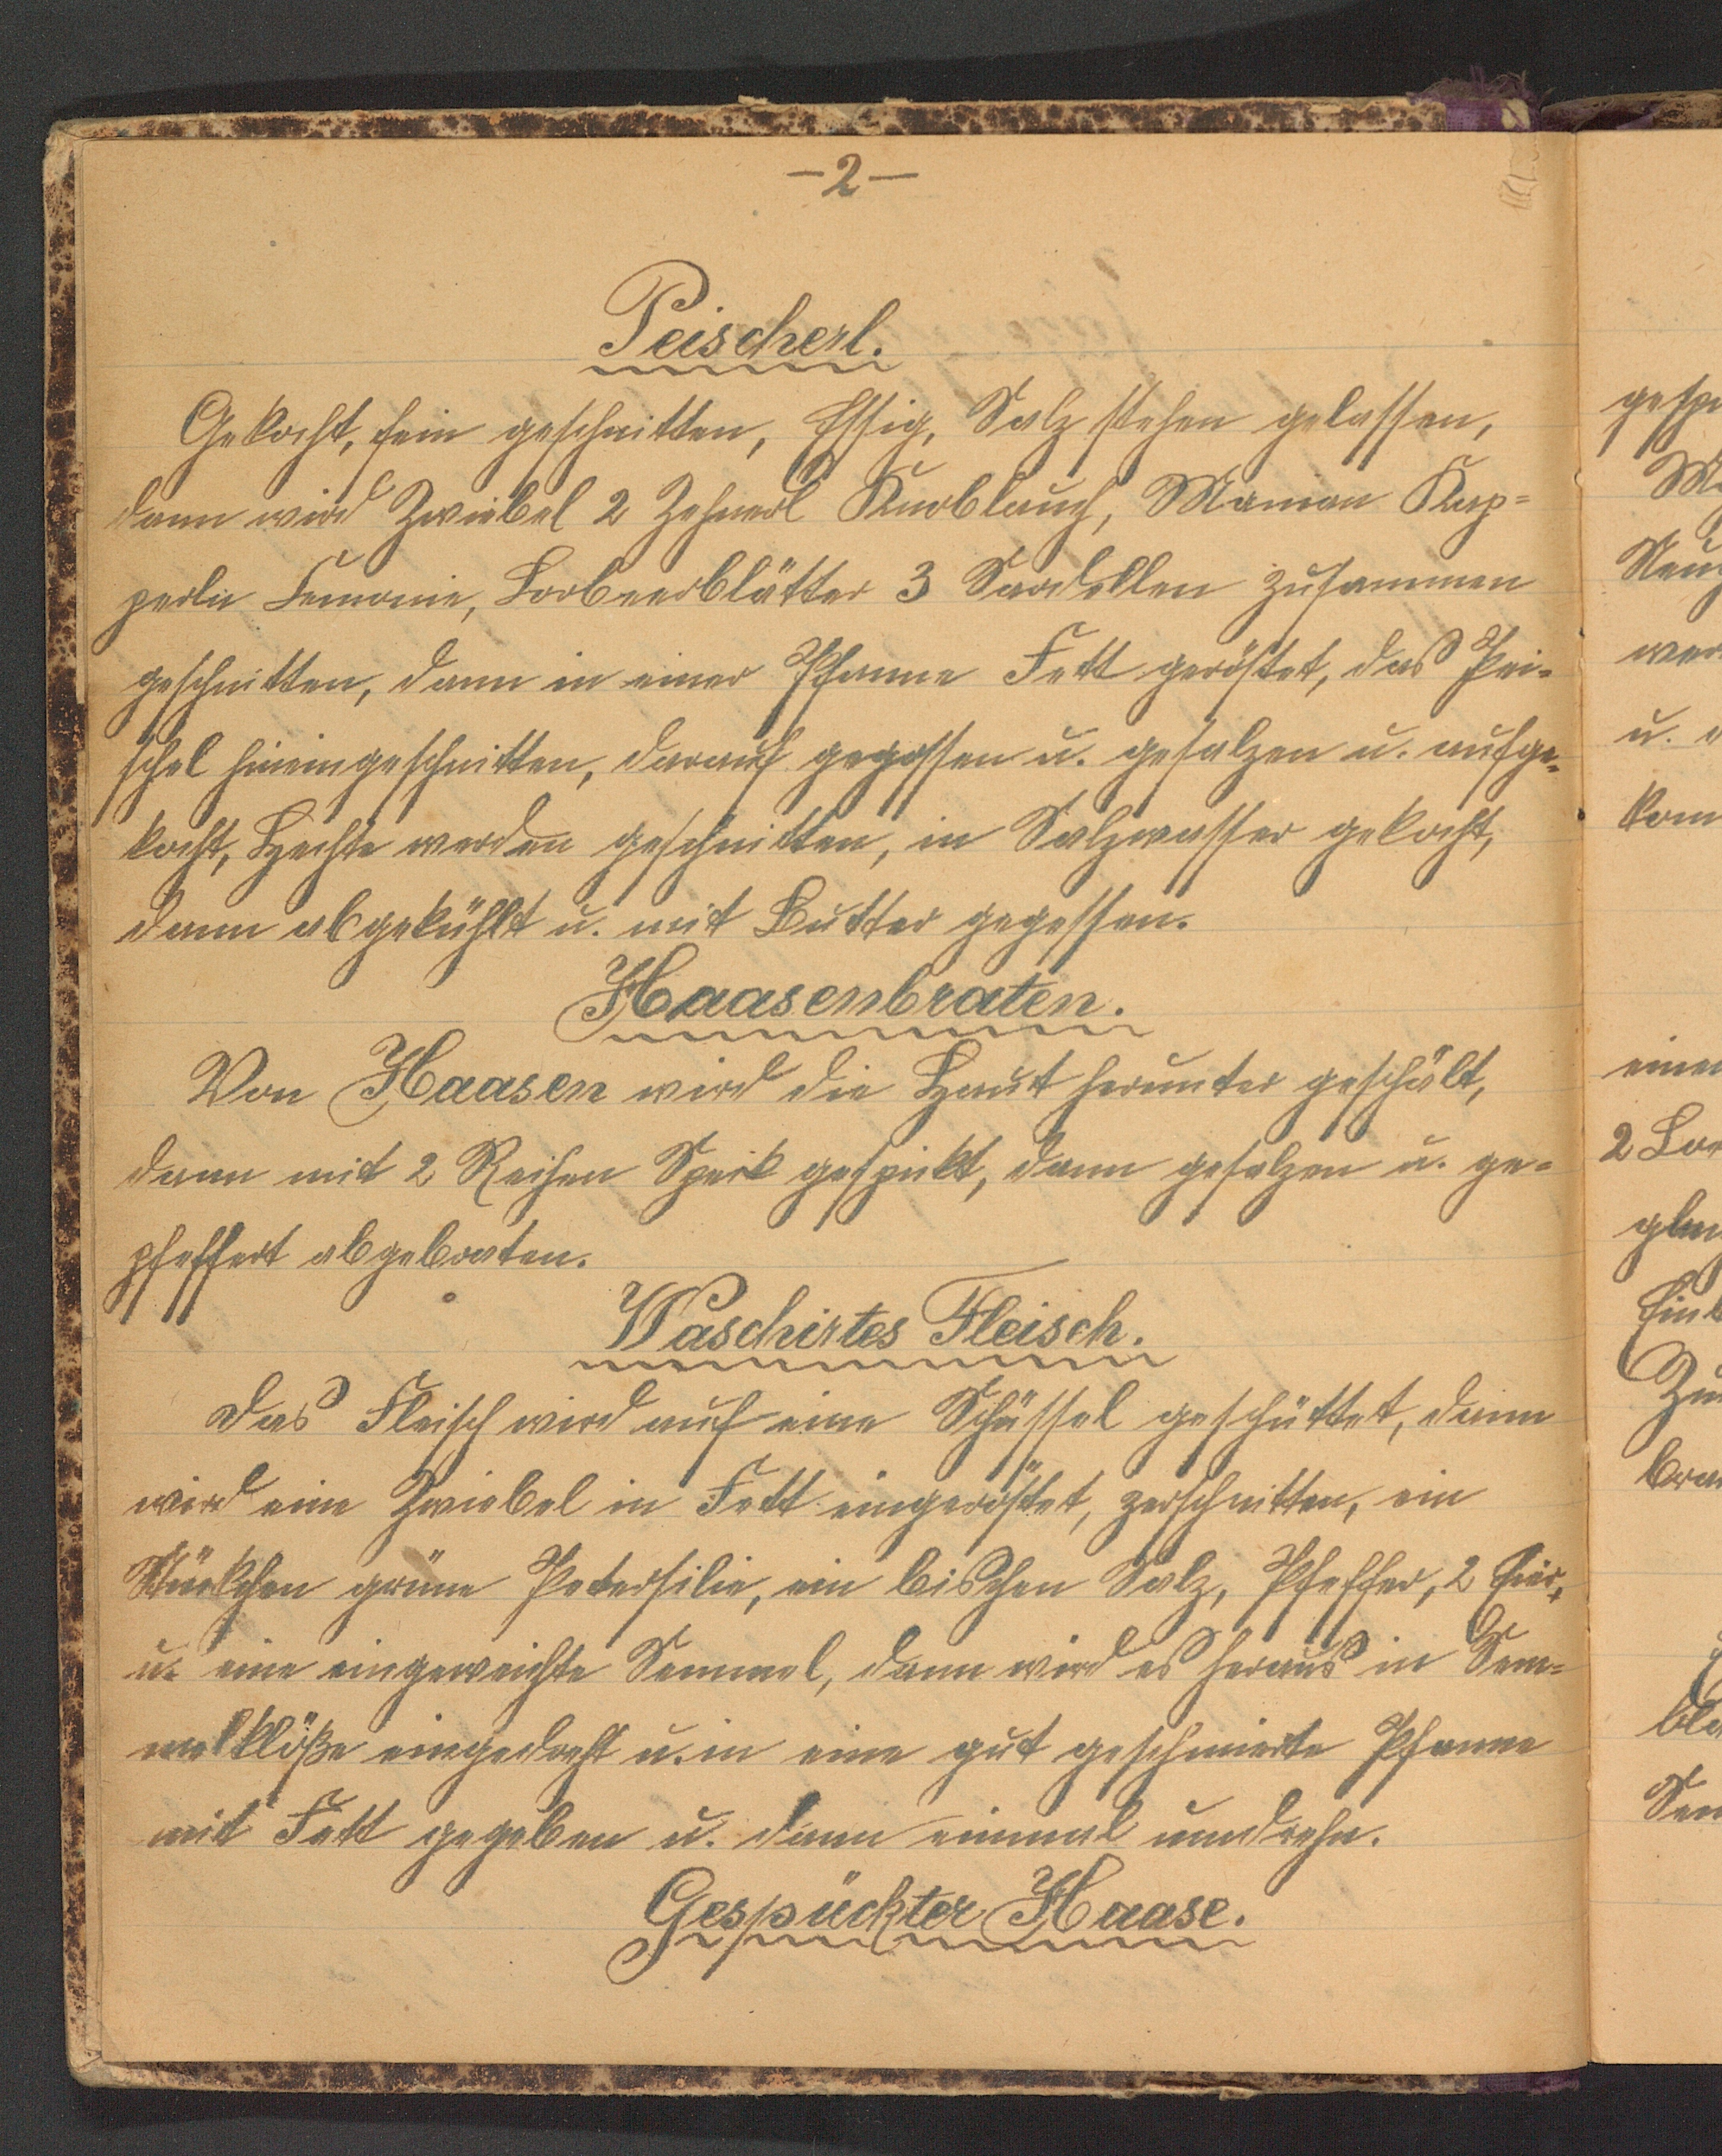 -2-
Peischerl.
Gekocht, fein geschnitten, Essig, Salz stehen gelassen,
dann wird Zwiebel 2 Zehnerl Knoblauch, Kap-
perln Lemonie, Lorbeerblätter 3 Sardellen zusammen
geschnitten, dann in einer Pfanne Fett geröstet, das Pei-
schel hineingeschnitten, darauf gegossen u. gesalzen u. aufge-
kocht, Hechte werden geschnitten, in Salzwasser gekocht,
dann abgekühlt u. mit Butter gegessen.
Haasenbraten.
Von Haasen wird die Haut herunter geschält,
dann mit 2 Reihen Speik gespikt, dann gesalzen u. ge-
pfeffert abgebraten.
Waschirtes Fleisch.
Das Fleisch wird auf eine Schüssel geschüttet, dann
wird eine Zwiebel in Fett eingeröstet, zerschnitten, ein
Stückchen grüne Petersilie, ein bischen Salz, Pfeffer, 2 Eier,
u. eine eingeweichte Semmel, dann wird es heraus in Sem-
melklöße eingedreht u. in eine gut geschmierte Pfanne
mit Fett gegeben u. dann einmal umdrehn.
Gespückter Haase.